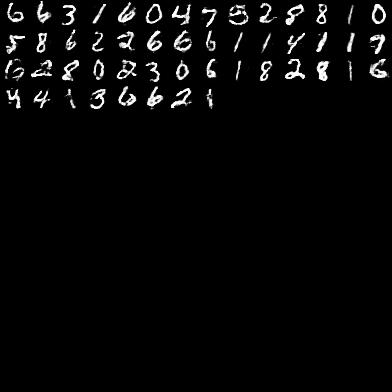 6 6 3 1 6 0 4 7 5 2 8 8 1 0
5 8 6 2 2 6 6 6 1 1 4 1 1 7
6 2 8 0 2 3 0 6 1 8 2 8 1 6
4 4 1 3 6 6 2 1